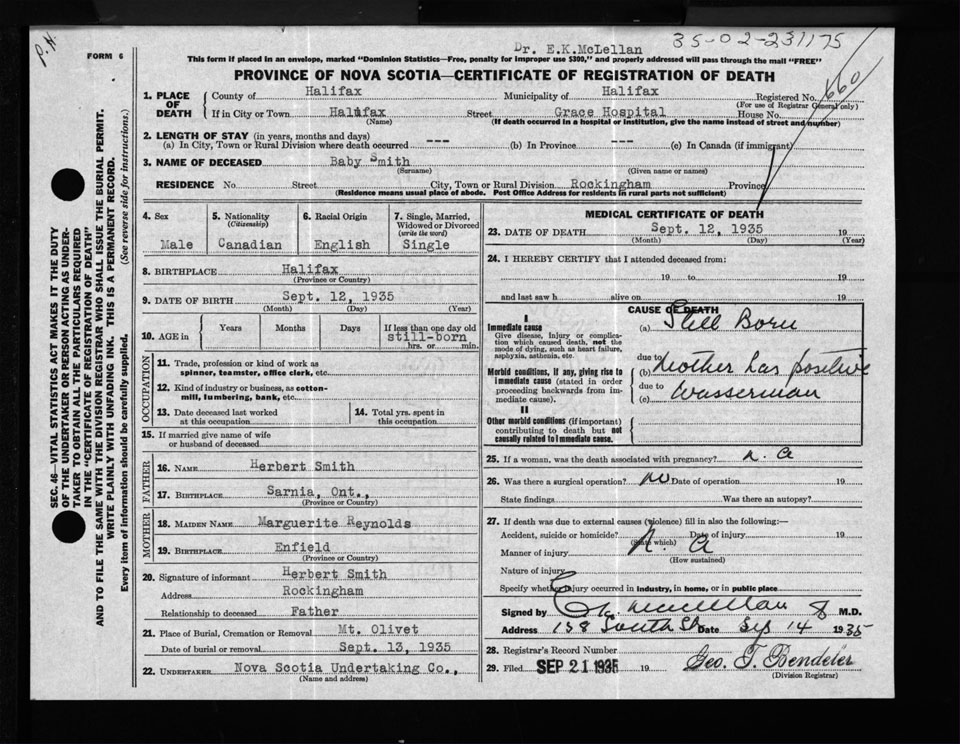 P.H.
Dr. E.K.McLellan
35-02-231175
FORM 6
This form if placed in an envelope, marked "Dominion Statistics—Free, penalty for improper use $300," and properly addressed will pass through the mail "FREE"
PROVINCE OF NOVA SCOTIA—CERTIFICATE OF REGISTRATION OF DEATH
660
1. PLACE OF DEATH
County of Halifax Municipality of Halifax Registered No.
(For use of Registrar General only)
If in City or Town Halifax Street Grace Hospital House No.
(Name) (If death occurred in a hospital or institution, give the name instead of street and number)
2. LENGTH OF STAY (in years, months and days)
(a) In City, Town or Rural Division where death occurred --- (b) In Province --- (c) In Canada (if immigrant)
3. NAME OF DECEASED Baby Smith
(Surname) (Given name or names)
RESIDENCE No. Street City, Town or Rural Division Rockingham Province
(Residence means usual place of abode. Post Office Address for residents in rural parts not sufficient)
SEC. 46—VITAL STATISTICS ACT MAKES IT THE DUTY
OF THE UNDERTAKER OR PERSON ACTING AS UNDER-
TAKER TO OBTAIN ALL THE PARTICULARS REQUIRED
IN THE "CERTIFICATE OF REGISTRATION OF DEATH"
AND TO FILE THE SAME WITH THE DIVISION REGISTRAR WHO SHALL ISSUE THE BURIAL PERMIT.
WRITE PLAINLY WITH UNFADING INK. THIS IS A PERMANENT RECORD.
Every item of information should be carefully supplied. (See reverse side for instructions.)
4. Sex
Male
5. Nationality
(Citizenship)
Canadian
6. Racial Origin
English
7. Single, Married,
Widowed or Divorced
(write the word)
Single
8. BIRTHPLACE Halifax
(Province or Country)
9. DATE OF BIRTH Sept. 12, 1935
(Month) (Day) (Year)
10. AGE in
Years Months Days If less than one day old
still-born
hrs. or min.
OCCUPATION
11. Trade, profession or kind of work as
spinner, teamster, office clerk, etc.
12. Kind of industry or business, as cotton-
mill, lumbering, bank, etc.
13. Date deceased last worked
at this occupation
14. Total yrs. spent in
this occupation
15. If married give name of wife
or husband of deceased
FATHER
16. NAME Herbert Smith
17. BIRTHPLACE Sarnia, Ont.,
(Province or Country)
MOTHER
18. MAIDEN NAME Marguerite Reynolds
19. BIRTHPLACE Enfield
(Province or Country)
20. Signature of informant Herbert Smith
Address Rockingham
Relationship to deceased Father
21. Place of Burial, Cremation or Removal Mt. Olivet
Date of burial or removal Sept. 13, 1935
22. UNDERTAKER Nova Scotia Undertaking Co.,
(Name and address)
MEDICAL CERTIFICATE OF DEATH
23. DATE OF DEATH Sept. 12, 1935 19
(Month) (Day) (Year)
24. I HEREBY CERTIFY that I attended deceased from:
19 to 19
and last saw h alive on 19
CAUSE OF DEATH
I
Immediate cause
Give disease, injury or complica-
tion which caused death, not the
mode of dying, such as heart failure,
asphyxia, asthenia, etc.
(a) Still Born
due to
Morbid conditions, if any, giving rise to
immediate cause (stated in order
proceeding backwards from im-
mediate cause).
(b) Mother has positive
due to
(c) Wasserman
II
Other morbid conditions (if important)
contributing to death but not
causally related to immediate cause.
25. If a woman, was the death associated with pregnancy? N. A
26. Was there a surgical operation? No Date of operation 19
State findings Was there an autopsy?
27. If death was due to external causes (violence) fill in also the following:—
Accident, suicide or homicide? Date of injury 19
(State which)
Manner of injury N. A
(How sustained)
Nature of injury
Specify whether injury occurred in industry, in home, or in public place
Signed by E K McLellan M.D.
Address 158 South St Date Sep 14 1935
28. Registrar's Record Number
29. Filed SEP 21 1935 19 Geo. T. Bendeler
(Division Registrar)